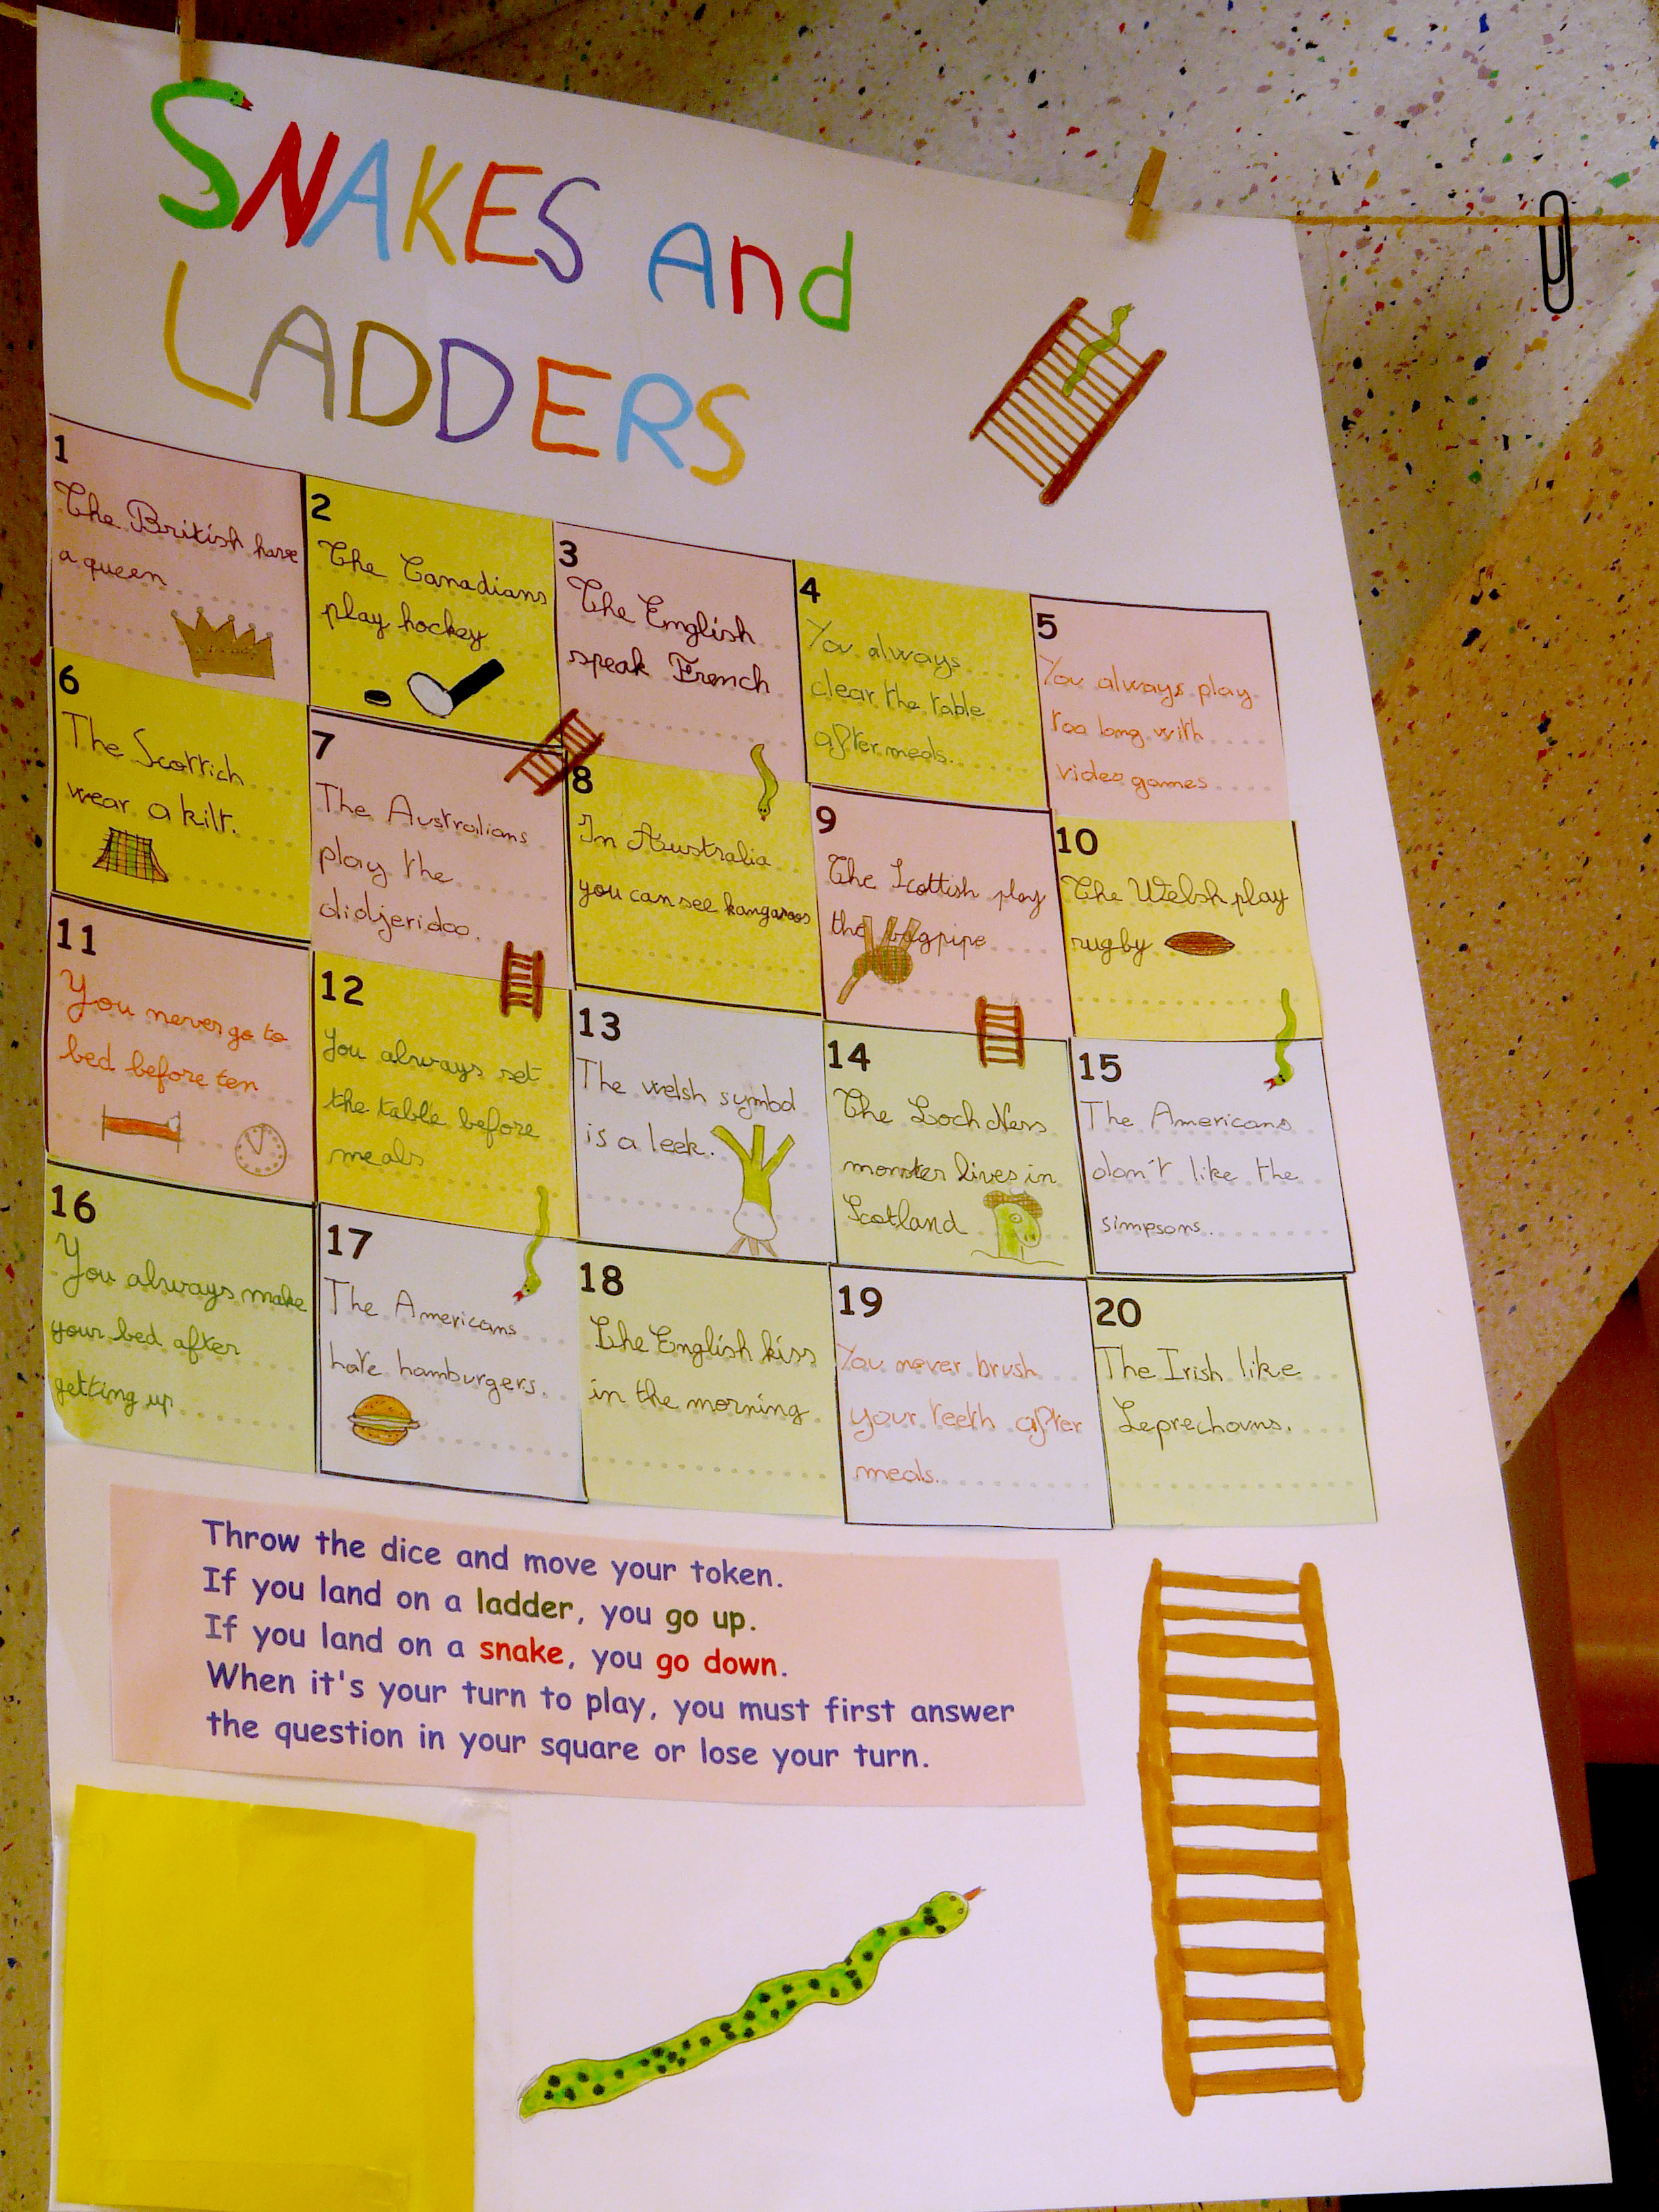 SNAKES And
LADDERS
1
The British have
a queen
2
The Canadians
play hockey
3
The English
speak French
4
You always
clear the table
after meals.
5
You always play
too long with
video games
6
The Scottich
wear a kilt.
7
The Australians
play the
didjeridoo.
8
In Australia
you can see kangaroos
9
The Scottish play
the bagpipe
10
The Welsh play
rugby
11
You never go to
bed before ten
12
You always set
the table before
meals
13
The welsh symbol
is a leek.
14
The Loch Ness
monster lives in
Scotland
15
The Americans
don't like the
simpsons.
16
You always make
your bed after
getting up
17
The Americans
hate hamburgers.
18
The English kiss
in the morning
19
You never brush
your teeth after
meals.
20
The Irish like
Leprechauns.
Throw the dice and move your token.
If you land on a ladder, you go up.
If you land on a snake, you go down.
When it's your turn to play, you must first answer
the question in your square or lose your turn.